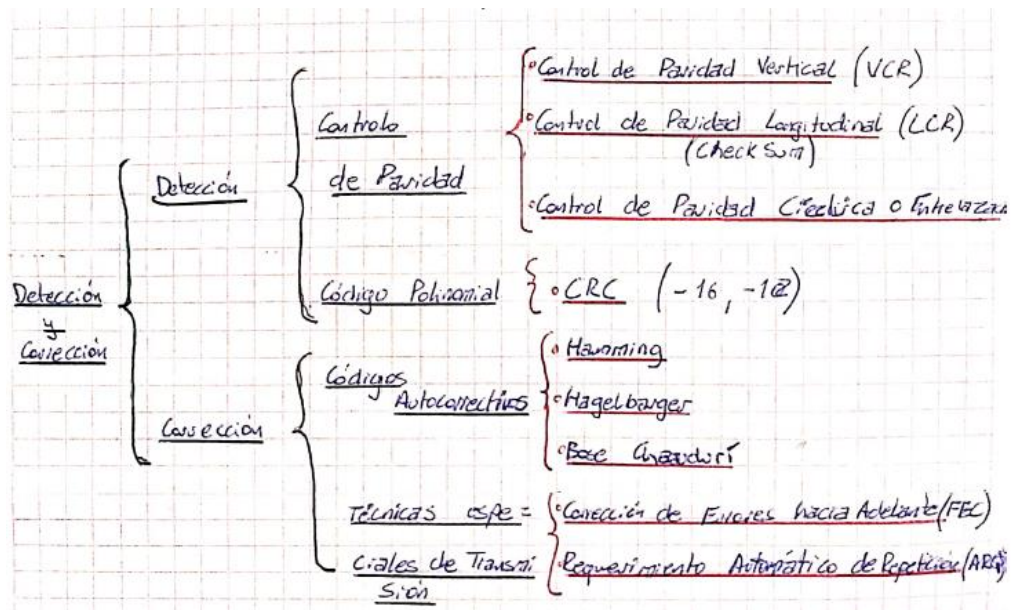 Detección
y
Corrección
Detección
Controlo
de Paridad
Control de Paridad Vertical (VCR)
Control de Paridad Longitudinal (LCR)
(Check Sum)
Control de Paridad o
Código Polinomial
CRC (-16, -12)
Corrección
Códigos
Autocorrectivos
Hamming
Hagelbarger
Bose
Técnicas espe=
ciales de Transmi
sión
Corrección de Errores hacia Adelante (FEC)
Requerimiento Automático de Repetición (ARQ)